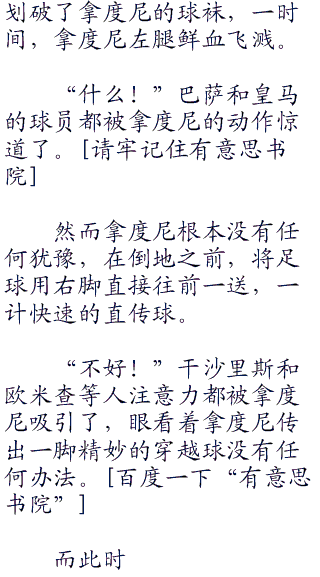 划破了拿度尼的球袜，一时
间，拿度尼左腿鲜血飞溅。
“什么！”巴萨和皇马
的球员都被拿度尼的动作惊
道了。[请牢记住有意思书
院]
然而拿度尼根本没有任
何犹豫，在倒地之前，将足
球用右脚直接往前一送，一
计快速的直传球。
“不好！”干沙里斯和
欧米查等人注意力都被拿度
尼吸引了，眼看着拿度尼传
出一脚精妙的穿越球没有任
何办法。[百度一下“有意思
书院”]
而此时